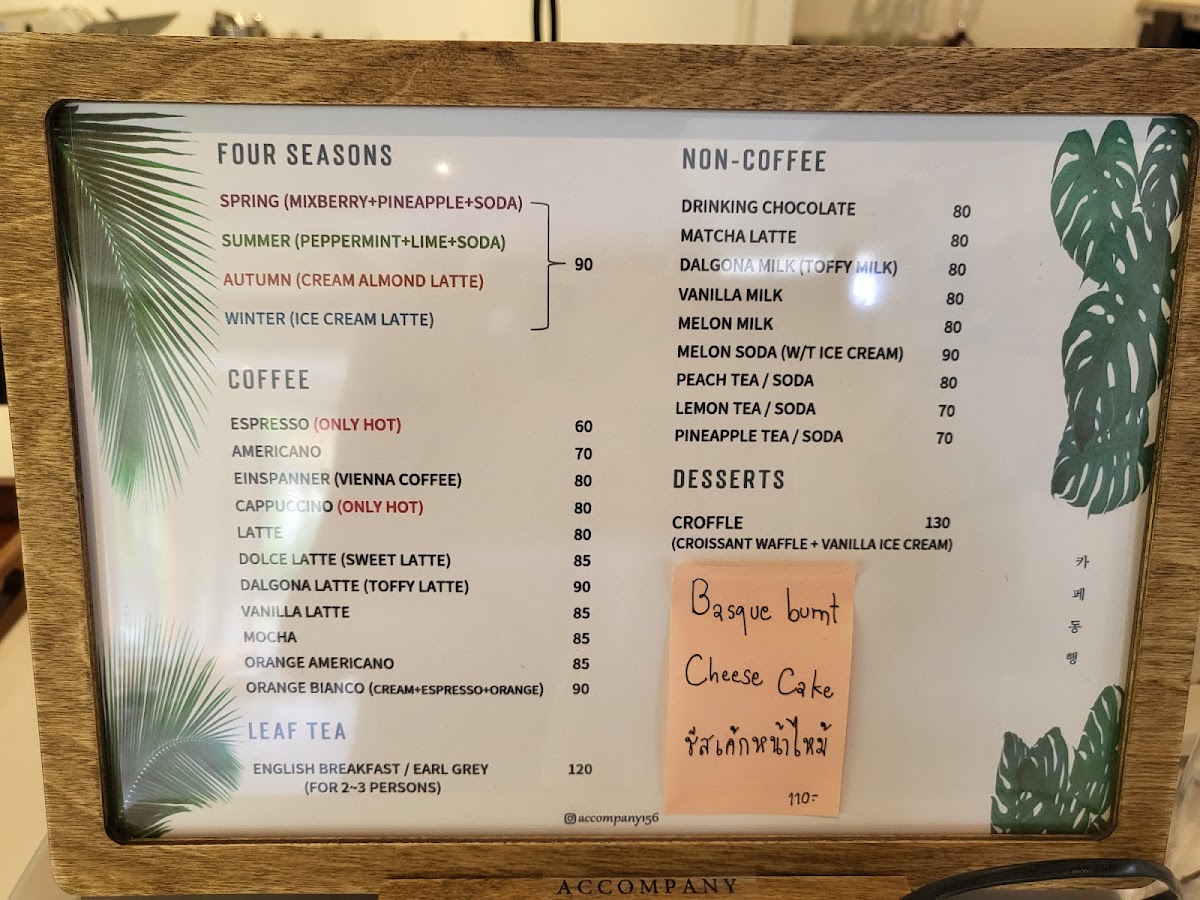 FOUR SEASONS
SPRING (MIXBERRY+PINEAPPLE+SODA)
SUMMER (PEPPERMINT+LIME+SODA)
AUTUMN (CREAM ALMOND LATTE)
WINTER (ICE CREAM LATTE)
90
COFFEE
ESPRESSO (ONLY HOT) 60
AMERICANO 70
EINSPANNER (VIENNA COFFEE) 80
CAPPUCCINO (ONLY HOT) 80
LATTE 80
DOLCE LATTE (SWEET LATTE) 85
DALGONA LATTE (TOFFY LATTE) 90
VANILLA LATTE 85
MOCHA 85
ORANGE AMERICANO 85
ORANGE BIANCO (CREAM+ESPRESSO+ORANGE) 90
LEAF TEA
ENGLISH BREAKFAST / EARL GREY 120
(FOR 2~3 PERSONS)
NON-COFFEE
DRINKING CHOCOLATE 80
MATCHA LATTE 80
DALGONA MILK (TOFFY MILK) 80
VANILLA MILK 80
MELON MILK 80
MELON SODA (W/T ICE CREAM) 90
PEACH TEA / SODA 80
LEMON TEA / SODA 70
PINEAPPLE TEA / SODA 70
DESSERTS
CROFFLE 130
(CROISSANT WAFFLE + VANILLA ICE CREAM)
Basque burnt
Cheese Cake
ชีสเค้กหน้าไหม้
110-
카
페
동
행
accompany156
ACCOMPANY